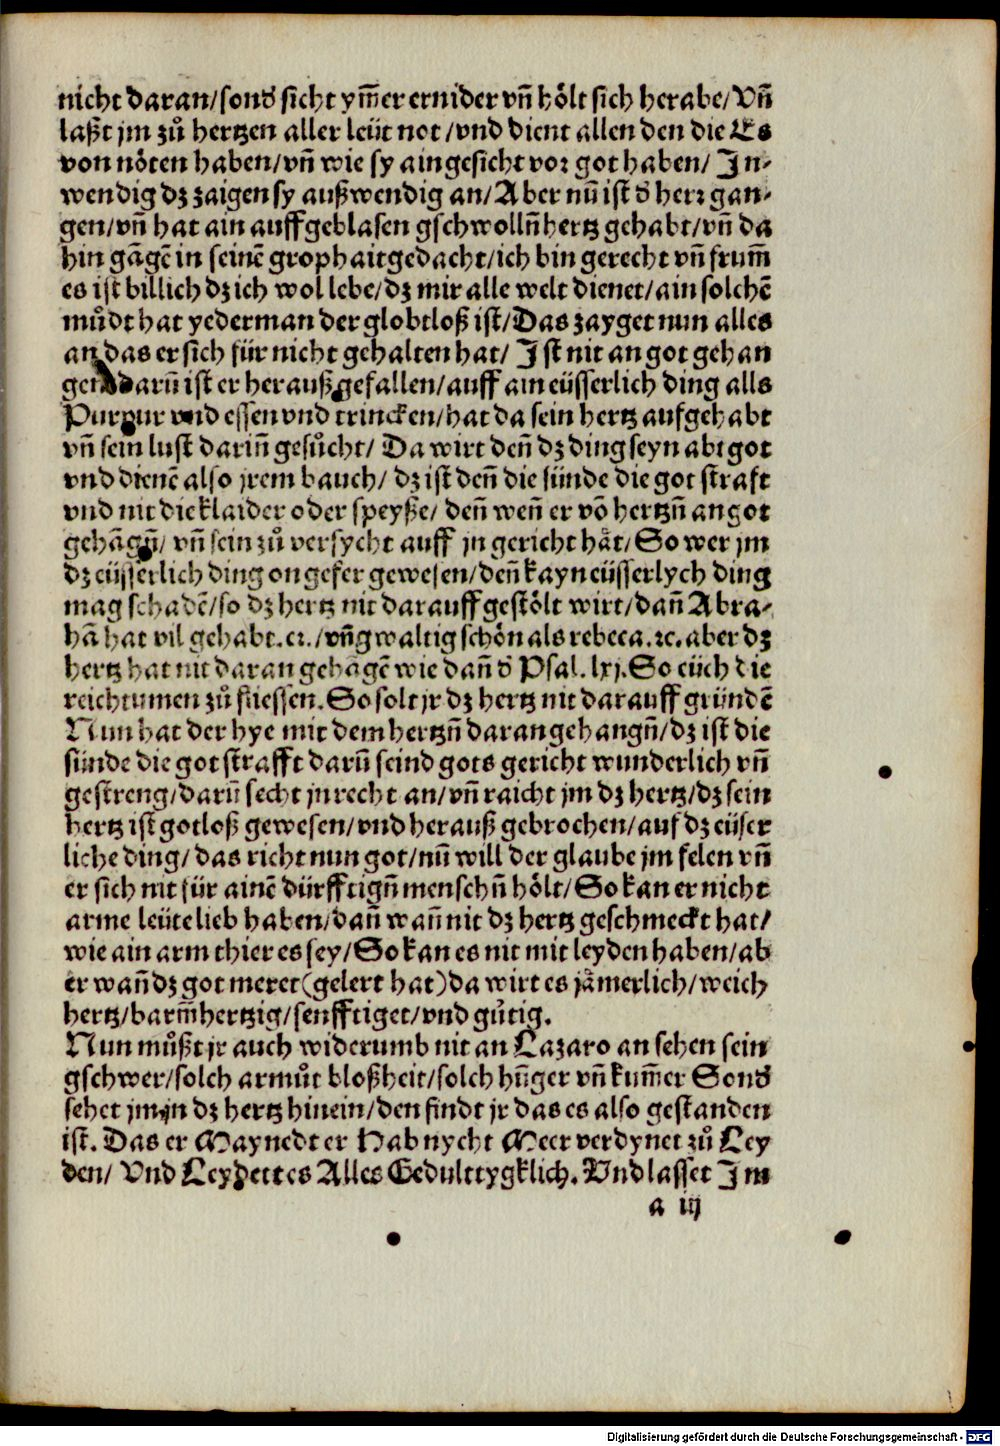 nicht daran/sond̕ sicht ym̃er ernider vñ hölt sich herabe/Vñ
laßt jm zů hertzen aller leüt not/vnd dient allen den die Es
von nöten haben/vñ wie sy aingesicht vor got haben/Jn⸗
wendig dz zaigen sy außwendig an/Aber nũ ist d̕ herr gan⸗
gen/vñ hat ain auffgeblasen gschwollñ hertz gehabt/vñ da
hin gãgẽ in seinẽ grophait gedacht/ich bin gerecht vñ frum̃
es ist billich dz ich wol lebe/dz mir alle welt dienet/ain solchẽ
můdt hat yederman der globtloß ist/Das zayget nun alles
an das er sich für nicht gehalten hat/Jst nit an got gehan
gen darũ ist er herauß gefallen/auff ain eüsserlich ding alls
Purpur vnd essen vnd trincken/hat da sein hertz aufgehabt
vñ sein lust dariñ gesůcht/Da wirt deñ dz ding seyn abtgot
vnd dienẽ also jrem bauch/dz ist deñ die sünde die got straft
vnd nit die klaider oder speyße/deñ weñ er võ hertzñ an got
gehãgñ/vñ sein zů versycht auff jn gericht hät/So wer jm
dz eüsserlich ding on gefer gewesen/deñ kayn eüsserlych ding
mag schadẽ/so dz hertz nit darauff gestölt wirt/dañ Abra⸗
hã hat vil gehabt.cꝛ./vñ gwaltig schön als rebeca.ꝛc.aber dz
hertz hat nit daran gehãgẽ wie dañ d̕ Psal.lxj.So eüch die
reichtumen zů fliessen.So solt jr dz hertz nit darauff gründẽ
Nun hat der hye mit dem hertzñ daran gehangñ/dz ist die
sünde die got strafft darũ seind gots gericht wunderlich vñ
gestreng/darũ secht jn recht an/vñ raicht jm dz hertz/dz sein
hertz ist gotloß gewesen/vnd herauß gebrochen/auf dz eüser
liche ding/das richt nun got/nũ will der glaube jm felen vñ
er sich nit für ainẽ dürfftigñ menschñ hölt/So kan er nicht
arme leüte lieb haben/dañ wañ nit dz hertz geschmeckt hat/
wie ain arm thier es sey/So kan es nit mit leyden haben/ab
er wañ dz got meret(gelert hat)da wirt es jämerlich/weich
hertz/barm̃hertzig/senfftiget/vnd gůtig.
Nun můßt jr auch widerumb nit an Lazaro an sehen sein
gschwer/solch armůt bloßheit/solch hũger vñ kum̃er Sond̕
sehet jm jn dz hertz hinein/den findt jr das es also gestanden
ist.Das er Maynedt er Hab nycht Meer verdynet zů Ley
den/Vnd Leydett es Alles Gedulttygklich.Vnd lasset Jm
a iij
Digitalisierung gefördert durch die Deutsche Forschungsgemeinschaft - DFG